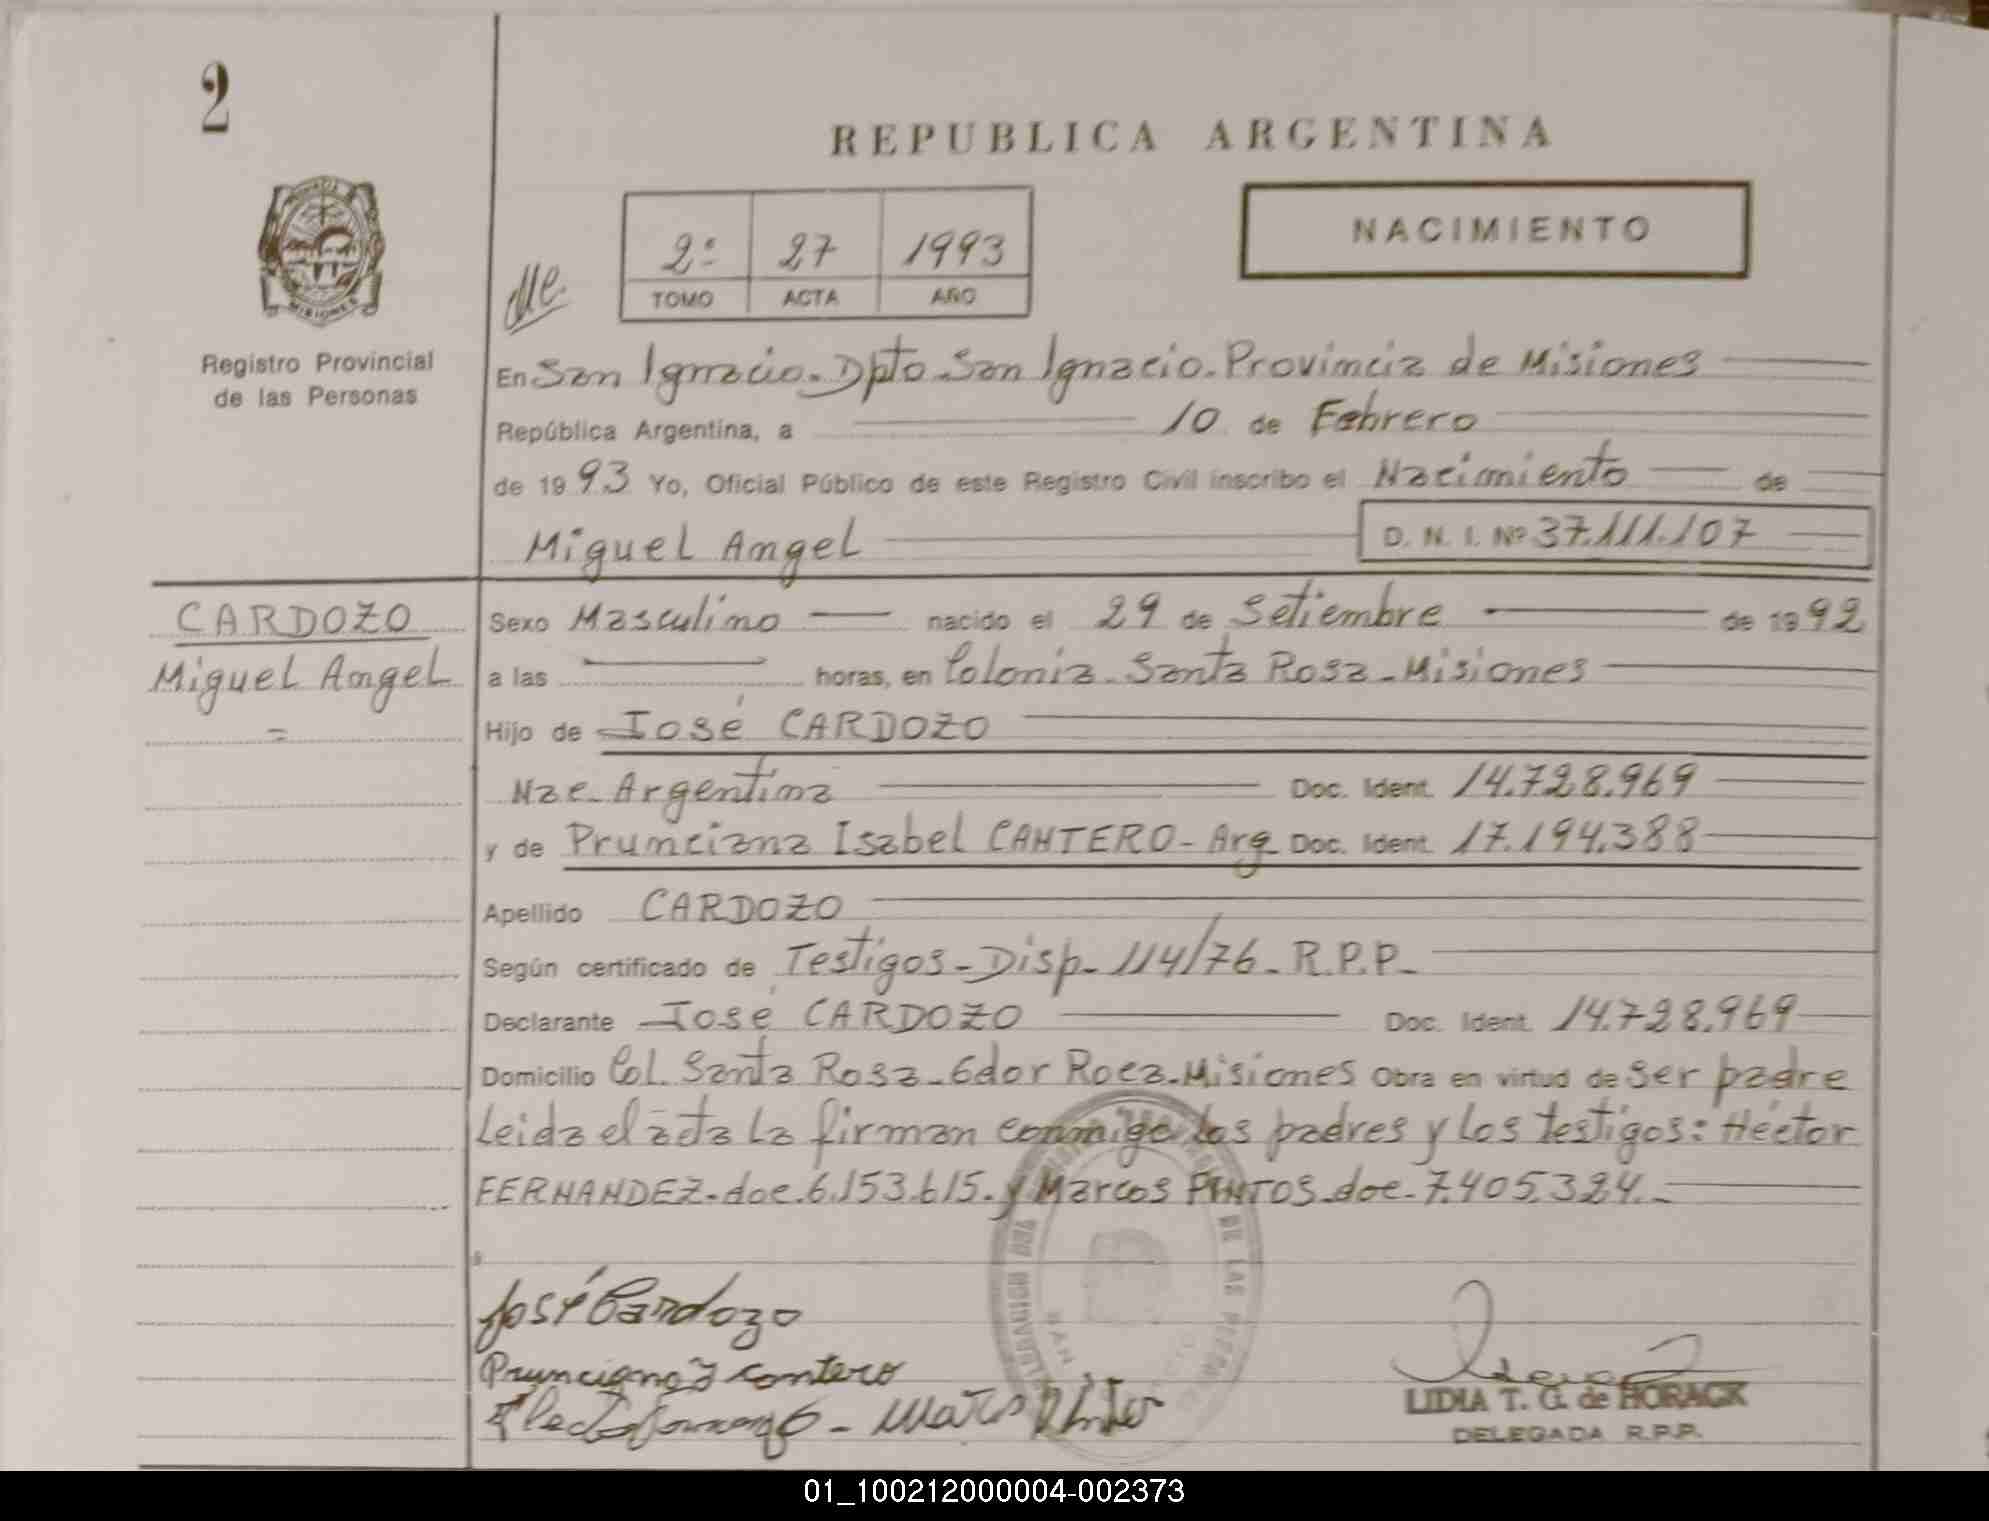 2
REPUBLICA ARGENTINA
NACIMIENTO
2º 27 1993
TOMO ACTA AÑO
MISIONES
Registro Provincial
de las Personas
En San Ignacio. Dpto San Ignacio. Provincia de Misiones
República Argentina, a 10 de Febrero
de 1993 Yo, Oficial Público de este Registro Civil inscribo el Nacimiento de
Miguel Angel D. N. I. Nº 37.111.107
CARDOZO
Miguel Angel
=
Sexo Masculino nacido el 29 de Setiembre de 1992
a las horas, en Colonia Santa Rosa - Misiones
Hijo de José CARDOZO
Nac. Argentina Doc. Ident. 14.728.969
y de Prunciana Isabel CANTERO - Arg Doc. Ident. 17.194.388
Apellido CARDOZO
Según certificado de Testigos - Disp. 114/76 - R.P.P.
Declarante José CARDOZO Doc. Ident. 14.728.969
Domicilio Col. Santa Rosa - Gdor Roca - Misiones Obra en virtud de ser padre
Leida el acta la firman conmigo los padres y los testigos: Héctor
FERNANDEZ - doc. 6.153.615. y Marcos PINTOS - doc. 7.405.324.-
José Cardozo
Prunciana Y contero
LIDIA T. G. de HORACK
DELEGADA R.P.P.
01_100212000004-002373